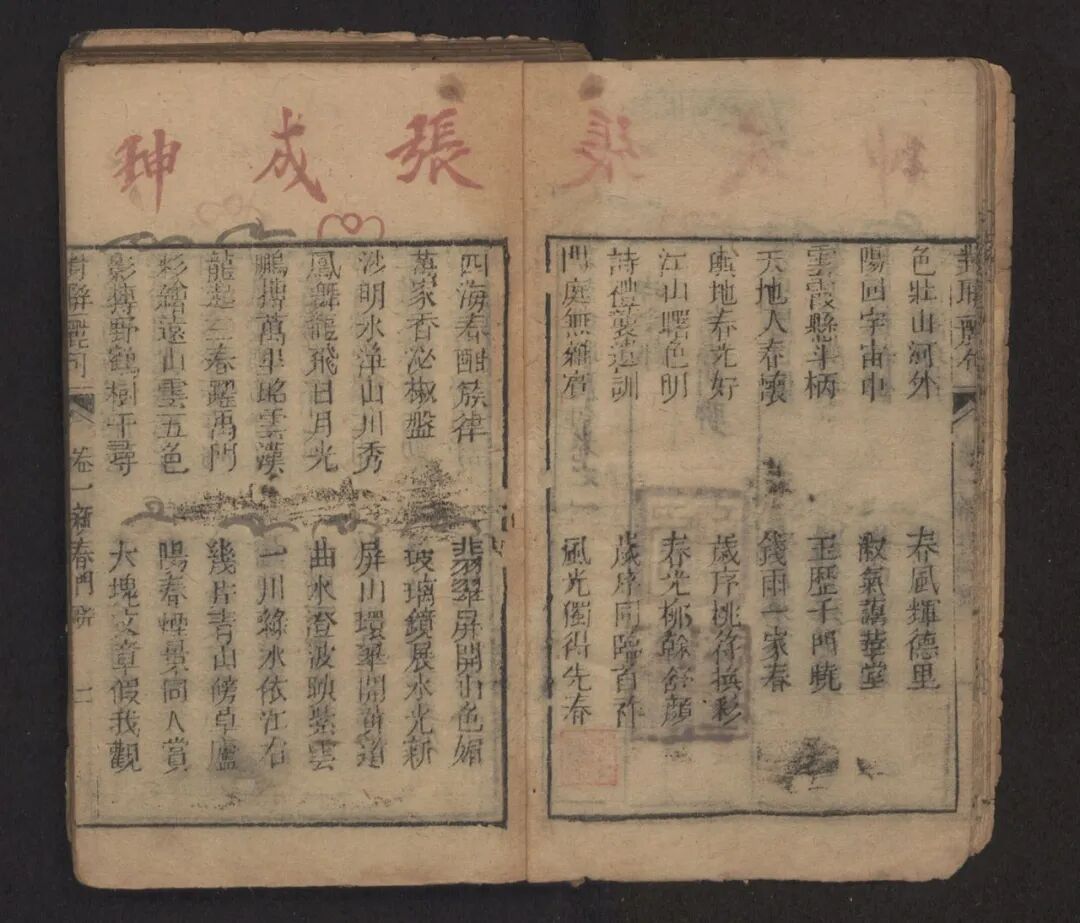 張成珅
對聯麗句
色壯山河外
春風輝德里
陽回宇宙中
淑氣藹華堂
雲霞縣斗柄
玉歷千門曉
天地人春懷
錢雨一家春
輿地春光好
歲序桃符換彩
江山曙色明
春光柳幹舒顏
詩禮裳遺訓
歲序同臨首祚
門庭無雜賓
風光獨得先春
四海春酣簇律
翡翠屏開山色媚
萬家香泌椒盤
玻璃鏡展水光新
沙明水淨山川秀
屏山環翠開黃道
鳳舞龍飛日月光
曲水澄波映紫雲
鵬摶萬里昭雲漢
一川綠水依江右
龍起三春躍禹門
幾片青山傍草廬
彩繪遠山雲五色
陽春煙景同人賞
影摶野鶴樹千尋
大塊文章假我觀
對聯麗句
卷一新春門
二